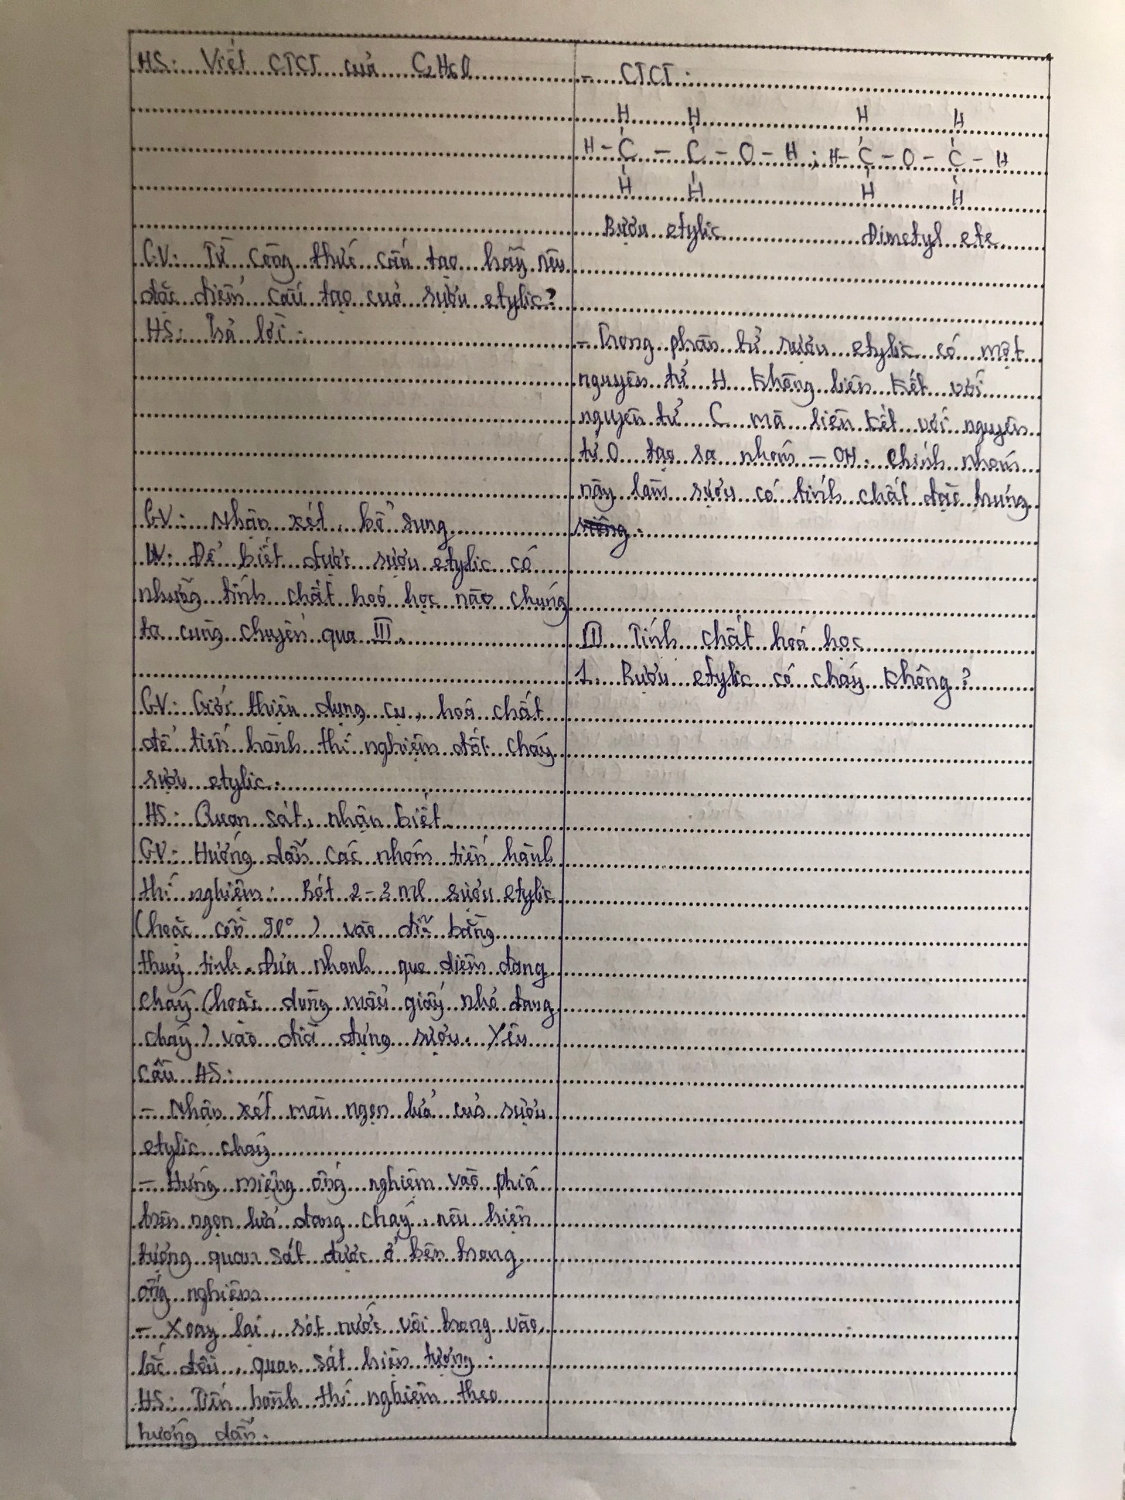 HS: Viết CTCT của C₂H₆O
- CTCT:
H H H H
H - C - C - O - H ; H - C - O - C - H
H H H H
Rượu etylic Dimetyl ete
GV: Từ công thức cấu tạo hãy nêu
đặc điểm cấu tạo của rượu etylic?
HS: Trả lời:
- Trong phân tử rượu etylic có một
nguyên tử H không liên kết với
nguyên tử C mà liên kết với nguyên
tử O tạo ra nhóm - OH. Chính nhóm
này làm rượu có tính chất đặc trưng
riêng.
GV: Nhận xét, bổ sung
ĐV: Để biết được rượu etylic có
những tính chất hoá học nào chúng
ta cùng chuyển qua III.
III. Tính chất hoá học
1. Rượu etylic có cháy không?
GV: Giới thiệu dụng cụ, hoá chất
để tiến hành thí nghiệm đốt cháy
rượu etylic.
HS: Quan sát, nhận biết
GV: Hướng dẫn các nhóm tiến hành
thí nghiệm: Rót 2-3 ml rượu etylic
(hoặc cồn 90°) vào đĩa bằng
thuỷ tinh. Đưa nhanh que diêm đang
cháy (hoặc dùng mẩu giấy nhỏ đang
cháy) vào đĩa đựng rượu. Yêu
cầu HS:
- Nhận xét màu ngọn lửa của rượu
etylic cháy
- Hướng miệng ống nghiệm vào phía
trên ngọn lửa đang cháy, nêu hiện
tượng quan sát được ở bên trong
ống nghiệm
- Xoay lại, rót nước vôi trong vào,
lắc đều, quan sát hiện tượng.
HS: Tiến hành thí nghiệm theo
hướng dẫn.